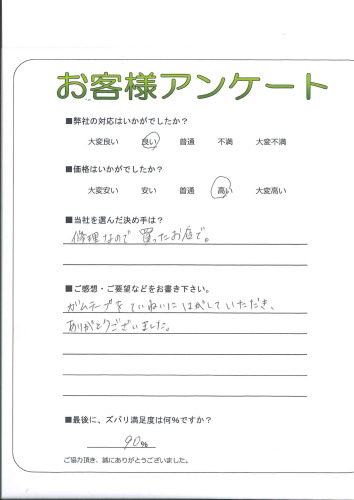 お客様アンケート
■弊社の対応はいかがでしたか？
大変良い 良い 普通 不満 大変不満
■価格はいかがでしたか？
大変安い 安い 普通 高い 大変高い
■当社を選んだ決め手は？
修理なので 買ったお店で。
■ご感想・ご要望などをお書き下さい。
ガムテープをていねいにはがしていただき、
ありがとうございました。
■最後に、ズバリ満足度は何%ですか？
90%
ご協力頂き、誠にありがとうございました。